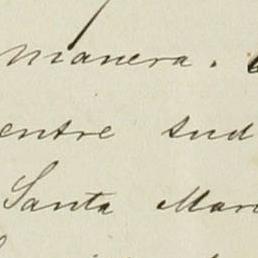 manera.
entre sud
Santa Mar